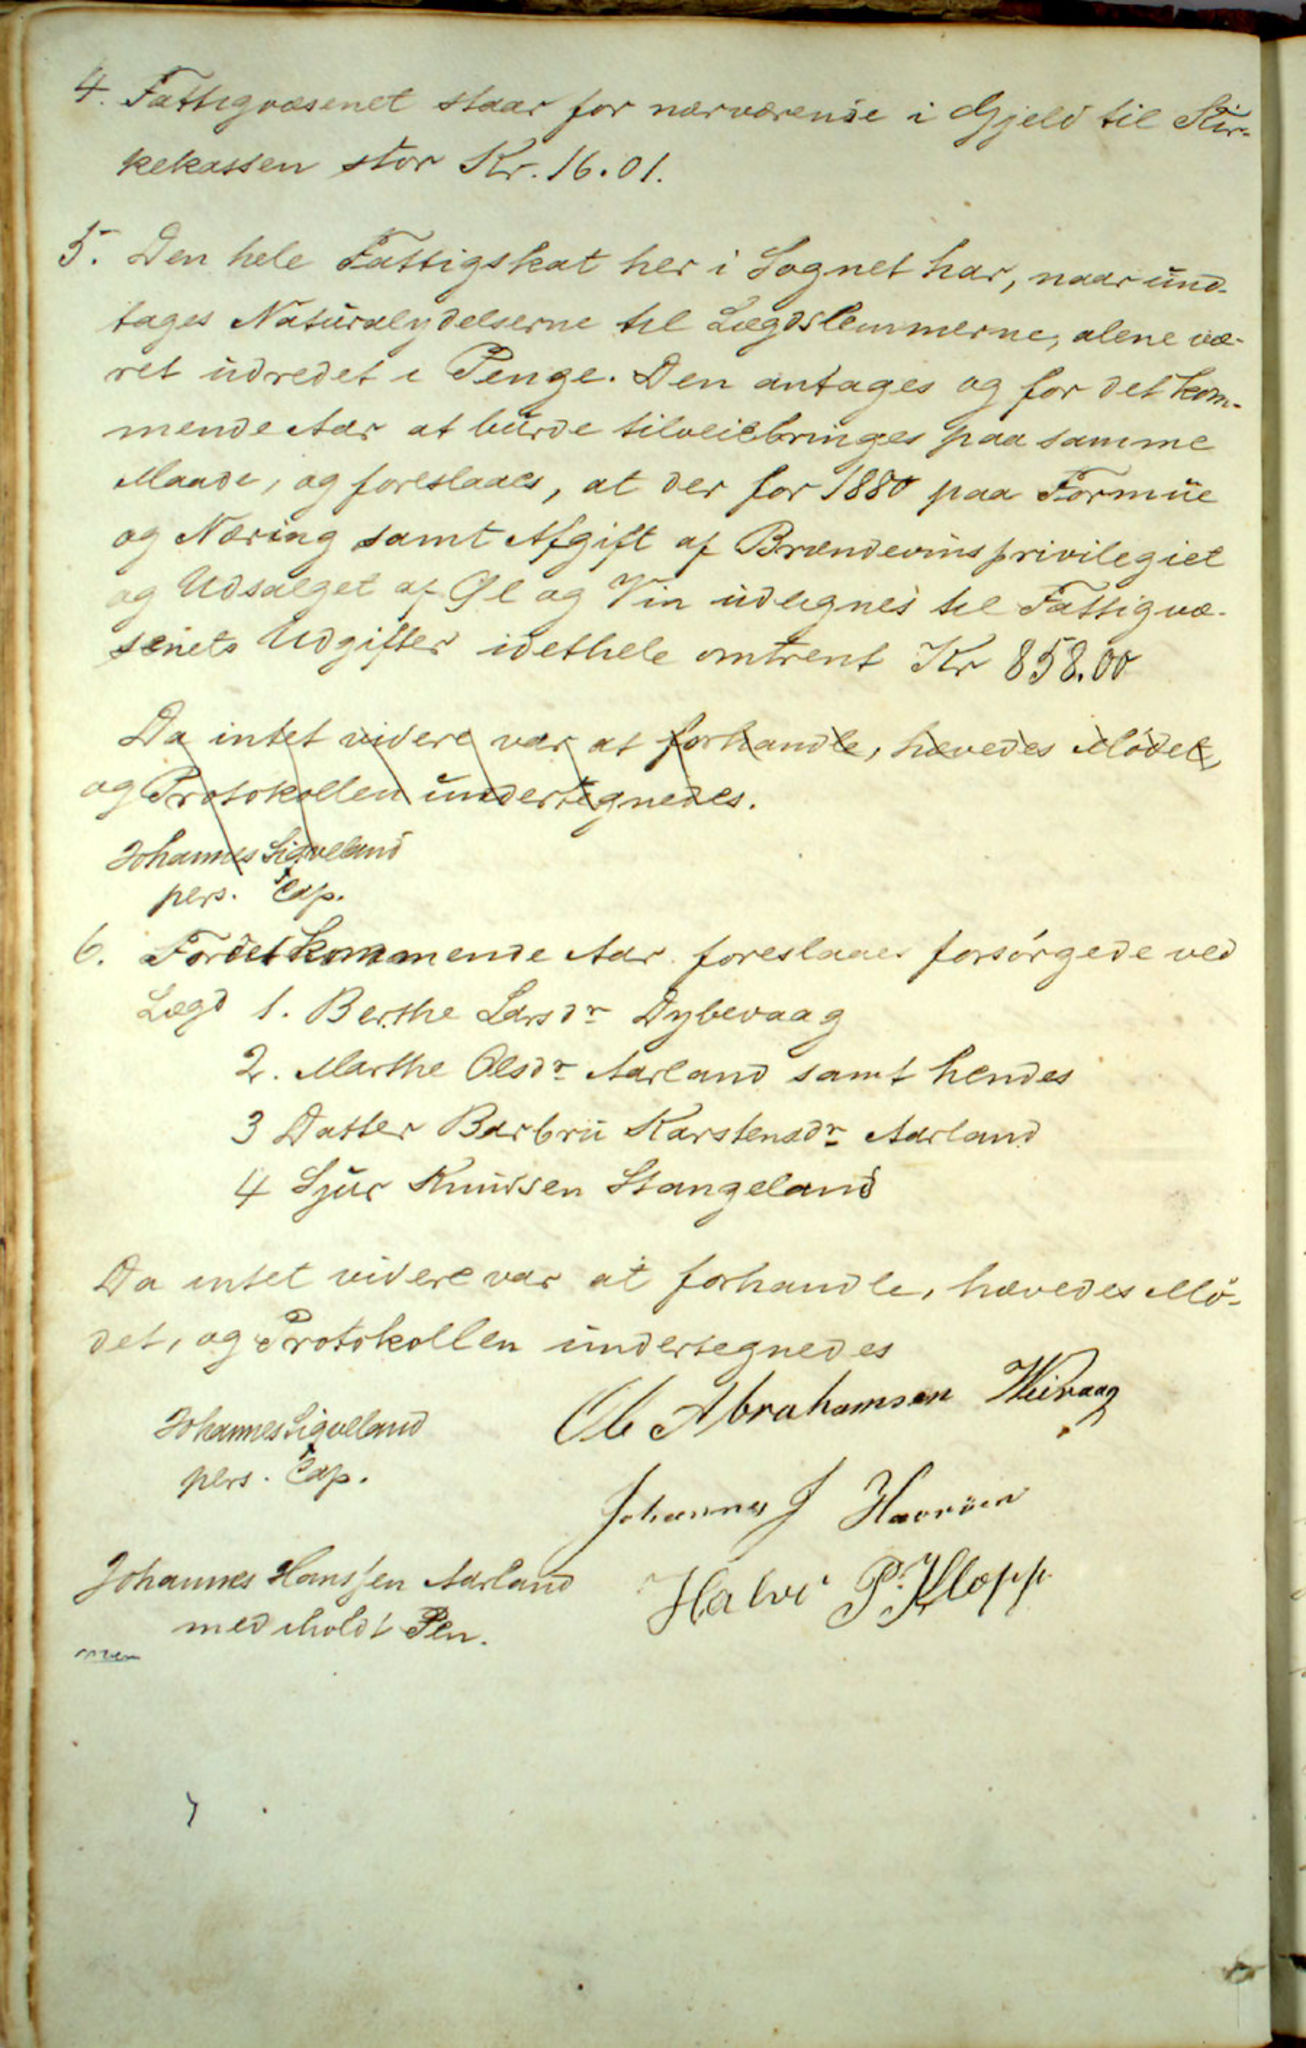 4. Fattigvæsenet staar for nærværende i Gjeld til Kir-
kekassen stor Kr. 16.01.
5. Den hele Fattigskat her i Sognet har, naar und-
tages Naturalydelserne til Lægdslemmerne, alene væ-
ret udredet i Penge. Den antages og for det kom-
mende Aar at burde tilveiebringes paa samme
Maade, og foreslaaes, at der for 1880 paa Formue
og Næring samt Afgift af Brændevinsprivilegiet
og Udsalget af Øl og Vin udlignes til Fattigvæ-
senets Udgifter idethele omtrent Kr 858.00
Da intet videre var at forhandle, hævedes Mødet,
og Protokollen undertegnedes.
Johannes Sigveland
pers. Cap.
6. For det kommende Aar foreslaaes forsørgede ved
Lægd 1. Berthe Larsdr Dybevaag
2. Marthe Olsdr Aarland samt hendes
3 Datter Barbru Karstensdr Aarland
4 Sjur Knudsen Stangeland
Da intet videre var at forhandle, hævedes Mø-
det, og Protokollen undertegnedes
Johannes Sigveland
pers. Cap.
Ole Abrahamsen
Johannes J
Johannes Hanssen Aarland
med iholdt Pen.
P. Klopp